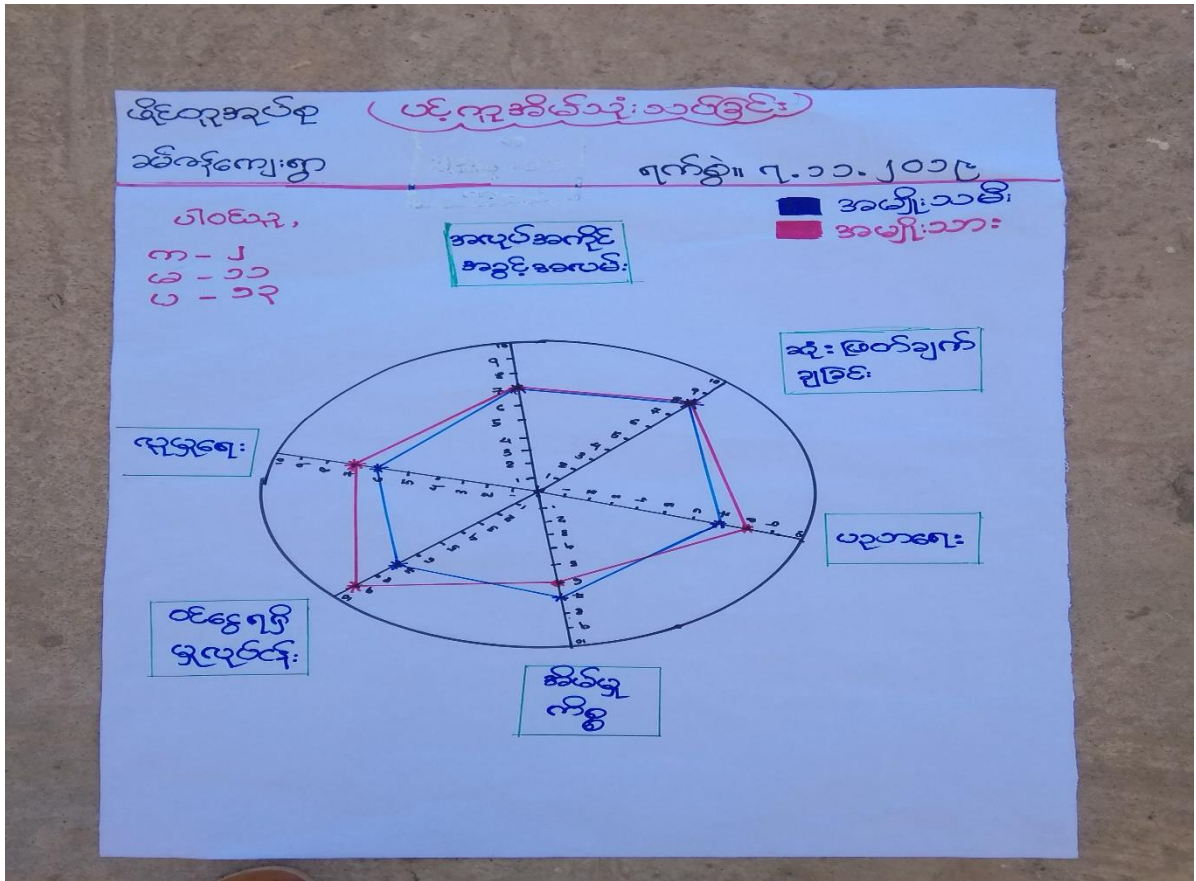 ဖိုင်တူအုပ်စု
(ပင့်ကူအိမ်သုံးသပ်ခြင်း)
ခမ်ဇန်ကျေးရွာ
ရက်စွဲ။ ၇.၁၁.၂၀၁၉
ပါဝင်သူ,
ကา - ၂
မ - ၁၁
ပ - ၁၃
အမျိုးသမီး
အမျိုးသား
အလုပ်အကိုင်
အခွင့်အလမ်း
ဆုံးဖြတ်ချက်
ချခြင်း
လူမှုရေး
ပညာရေး
ဝင်ငွေရရှိ
မှုလုပ်ငန်း
အိမ်မှု
ကိစ္စ